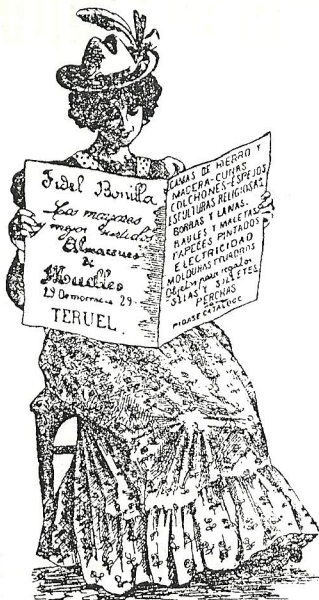 Fidel Bonilla
Los mayores y
mejor surtidos
Almacenes
de
Muebles
29 Democracia 29.
TERUEL.
CAMAS DE HIERRO Y
MADERA-CUNAS
COLCHONES-ESPEJOS
ESCULTURAS RELIGIOSAS
BORRAS Y LANAS.
BAULES Y MALETAS
PAPELES PINTADOS
ELECTRICIDAD
MOLDURAS CUADROS
Objetos para regalos
SILLAS Y SILLETES
PERCHAS
PIDASE CATALOGO